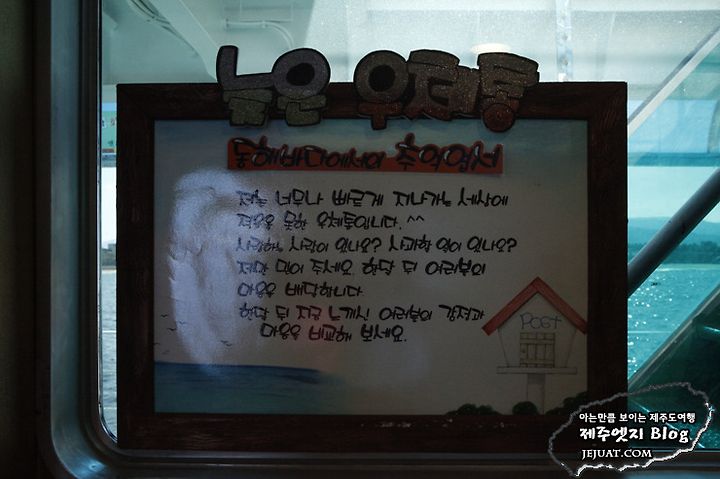 늙은 우체통
동해바다에서의 추억엽서
저는 너무나 빠르게 지나가는 세상에
적응을 못한 우체통입니다.^^
사랑하는 사람이 있나요? 사과할 일이 있나요?
저만 믿어 주세요. 한달 뒤 여러분의
마음을 배달합니다.
한달 뒤 지금 느끼신 여러분의 감정과
마음을 비교해 보세요.
POST
아는만큼 보이는 제주도여행
제주엣지 Blog
JEJUAT.COM